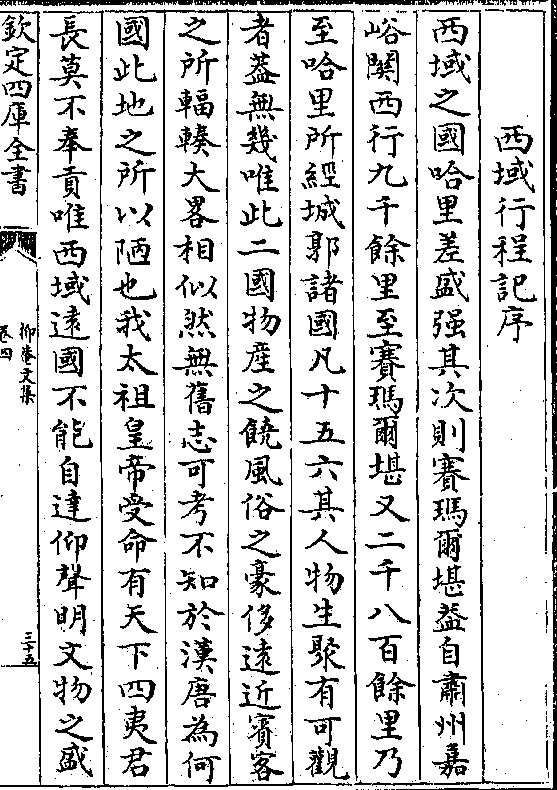 西域行程記序
西域之國哈里差盛强其次則賽瑪爾堪葢自肅州嘉
峪關西行九千餘里至賽瑪爾堪又二千八百餘里乃
至哈里所經城郭諸國凡十五六其人物生聚有可觀
者葢無幾唯此二國物産之饒風俗之豪侈遠近賓客
之所輻輳大畧相似然無舊志可考不知於漢唐為何
國此地之所以陋也我太祖皇帝受命有天下四夷君
長莫不奉貢唯西域遠國不能自達仰聲明文物之盛
欽定四庫全書
抑菴文集
卷四
三十五